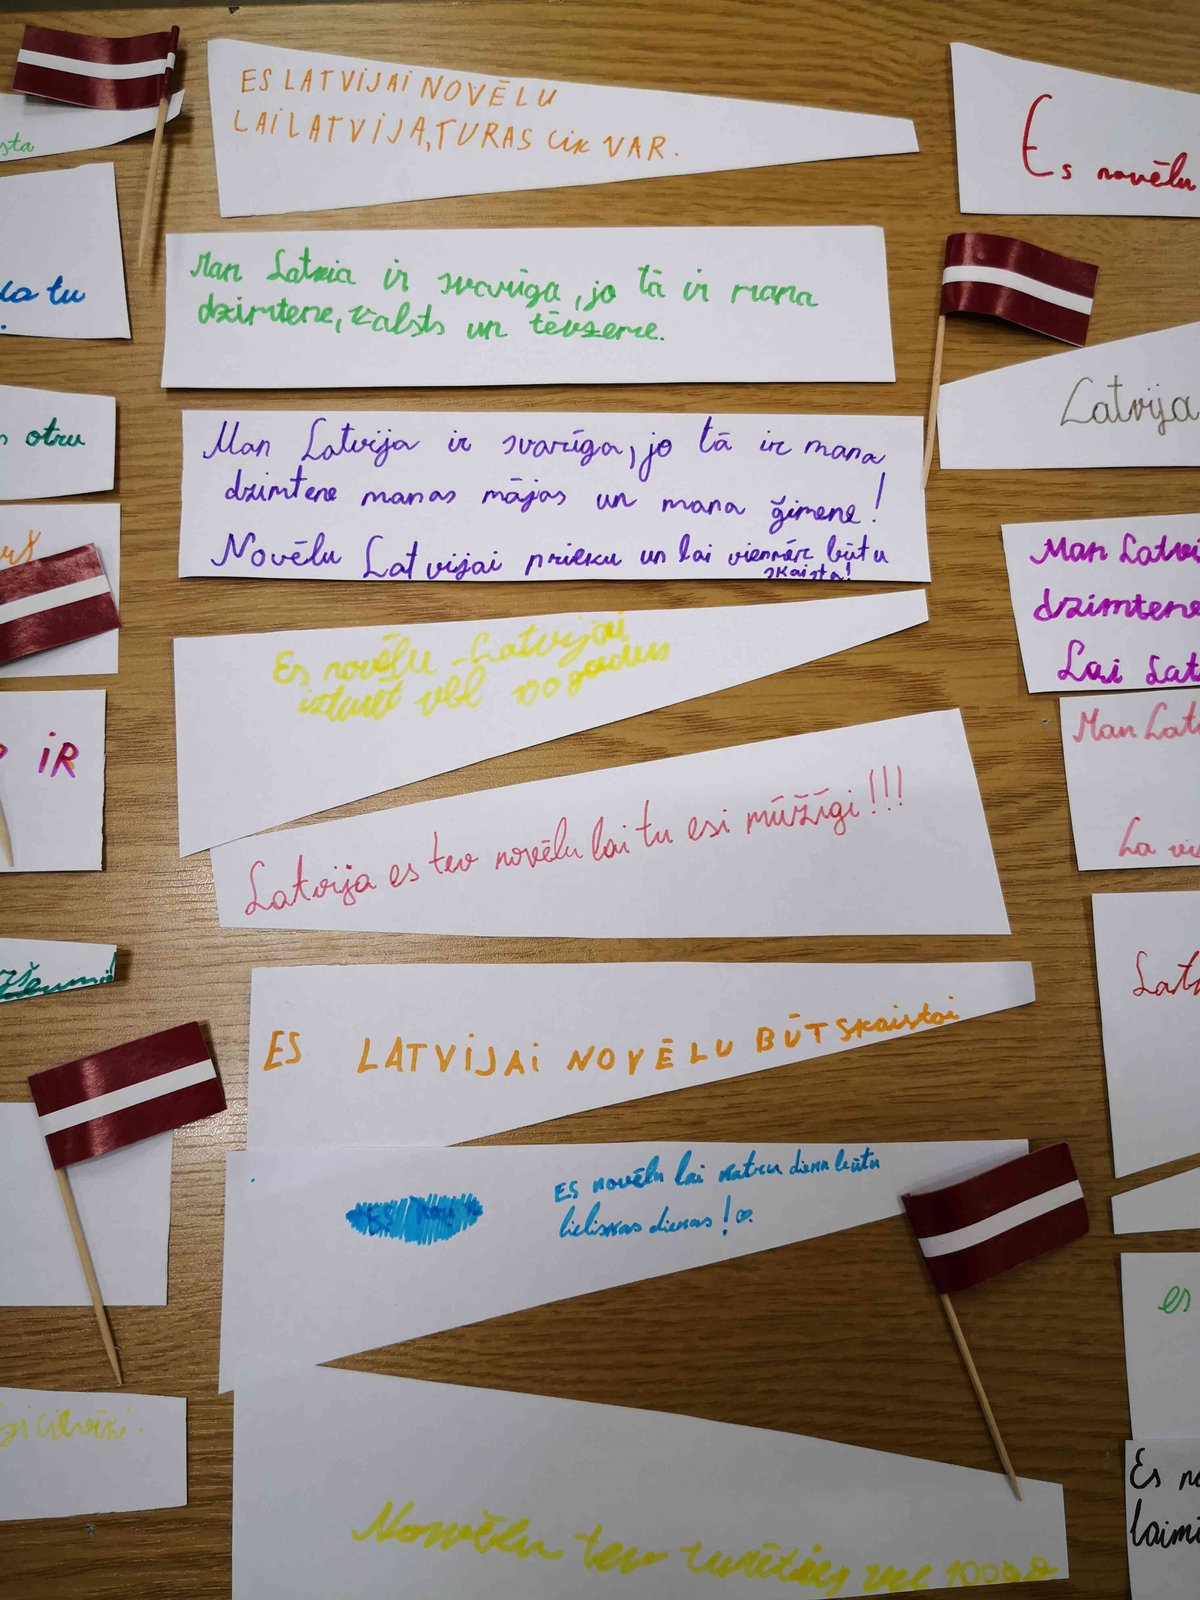 ES LATVIJAI NOVĒLU
LAI LATVIJA, TURAS CiK VAR.
Man Latvia ir svarūga, jo tā ir mana
dzimtene, valsts un tēvzeme.
Man Latvija ir svarīga, jo tā ir mana
dzimtene manas mājas un mana ģimene!
Novēlu Latvijai prieku un lai vienmēr būtu
skaista!
Es novēlu Latvijai
izturēt vēl 100 gadus
Latvija es tev novēlu lai tu esi mūžīgi!!!
ES LATVIJAI NOVĒLU BŪT skaistai
ES novēlu lai katru dienu būtu
lieliskas dienas!
Novēlu tev turēties vēl
sta
tu
otru
iR
Es novēlu
Latvija
Man Latvi
dzimtene
Lai Lat
Man Lat
La vi
Lat
es
Es no
laimi